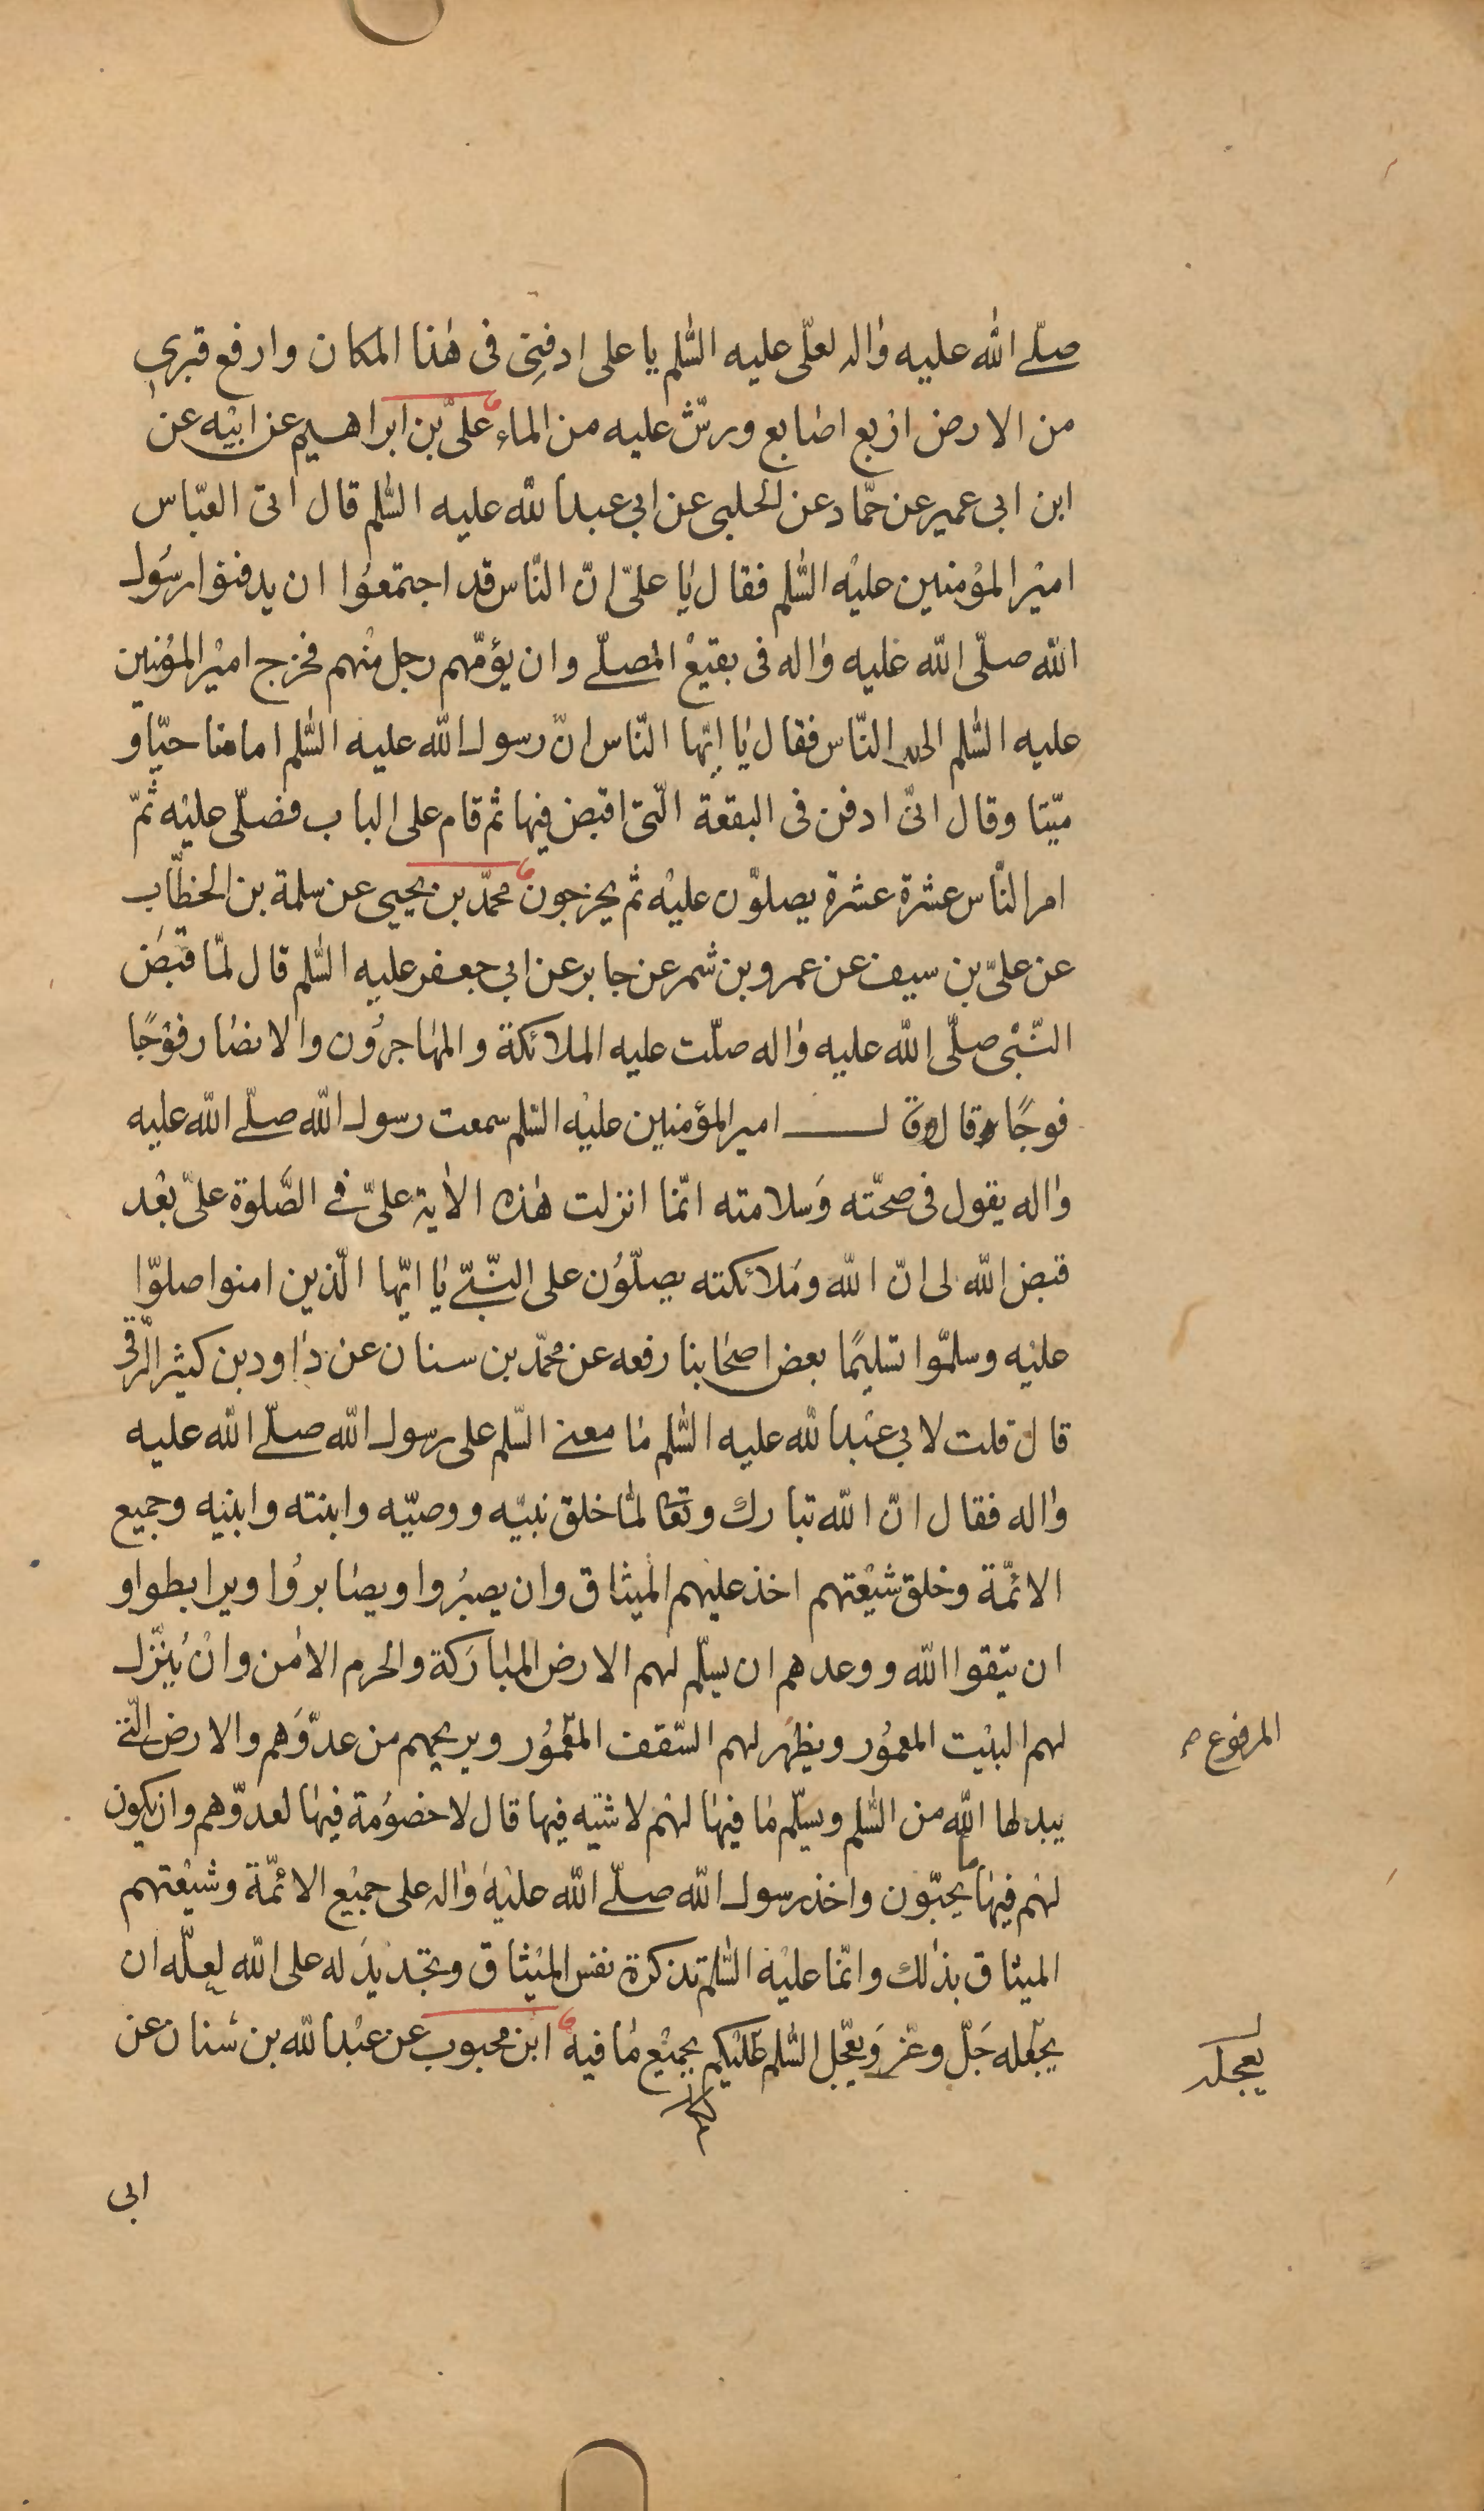 صلّى الله عليه واله لعلّى عليه السّلم يا على ادفِنى فى هٰذا المكان وارفع قبرى
من الارض اربع اصابع ورشّ عليه من الماء علىّ بن ابراهيم عن ابيْه عن
ابن ابى عمير عن حمّاد عن الحلبى عن ابى عبدالله عليه السّلم قال اتى العبّاس
اميْر المؤمِنين عليْه السّلم فقال يا علىّ انّ النّاس قد اجتمعوُا ان يدفنوا رسُول
الله صلّى الله عليه واله فى بقيعْ المصلّى وان يؤمّهم رجل منْهم فخرج اميْر المؤمنين
عليه السّلم الى النّاس فقال يا ايّها النّاس انّ رسول الله عليه السّلم امامنا حيّا و
ميّتا وقال انّى ادفن فى البقعة الّتى اقبض فيها ثم قام على الباب فصلّى عليْه ثمّ
امر النّاس عشرة عشرة يصلوّن عليْه ثم يخرجون محمّد بن يحيى عن سلمة بن الخطّاب
عن علىّ بن سيف عن عمرو بن شمر عن جابر عن ابى جعفر عليه السّلم قال لمّا قبضَ
النّبْى صلّى الله عليه واله صلّت عليه الملائكة والمهاجروُن والانصار فوْجًا
فوجًا قال وقال امير المؤمنين عليْه السّلم سمعت رسول الله صلّى الله عليه
واله يقول فى صحّته وَسلامته انّما انزلت هٰذه الاٰية علىّ فى الصَّلوة علىّ بعْد
قبض الله لى انّ الله ومَلائكته يصلّوُن على النّبىّ يا ايّها الّذين امنوا صلوّا
عليْه وسلموّا تسليمًا بعض اصحَابنا رفعه عن محمّد بن سنان عن داود بن كثيْر الرّقى
قال قلت لابى عبْدالله عليه السّلم مٰا معنى السّلم على رسول الله صلّى الله عليه
واله فقال انّ الله تبارك وتعا لمّا خلق نبيّه ووصيّه وابنته وابنيْه وجميع
الائمّة وخلق شيْعتهم اخذ عليْهم الميْثاق وان يصبرُوا ويصٰابروُا ويرابطوا و
ان يتقوا الله ووعدهم ان يسلّم لهم الارض المبٰارَكة والحرم الاٰمن وانْ ينَزّل
لهم البيْت المعموُر ويظهَر لهم السّقف المعْموُر ويريحهم من عدوّهَم والارض الّتى
المرفوع م
يبدلها الله من السّلم ويسلّم مٰا فيهٰا لهُم لا شيْه فيها قال لا خصوُمة فيهٰا لعدوّهم وان يكون
لهُم فيهٰا ما يحبّون واخذ رسول الله صلّى الله عليْهَ واله على جميْع الائمّة وشيْعتهم
الميثاق بذٰلك وانّما عليْه السّلم تذكرة نفس الميْثاق وتجْديدَ له على الله لعلّه ان
يجّعله جَلّ وعّز وَيعّجل السّلم عَليْكم بجميْع مٰا فيه ابن محبوب عن عبْدالله بن سنان عن
يعجله
ابى